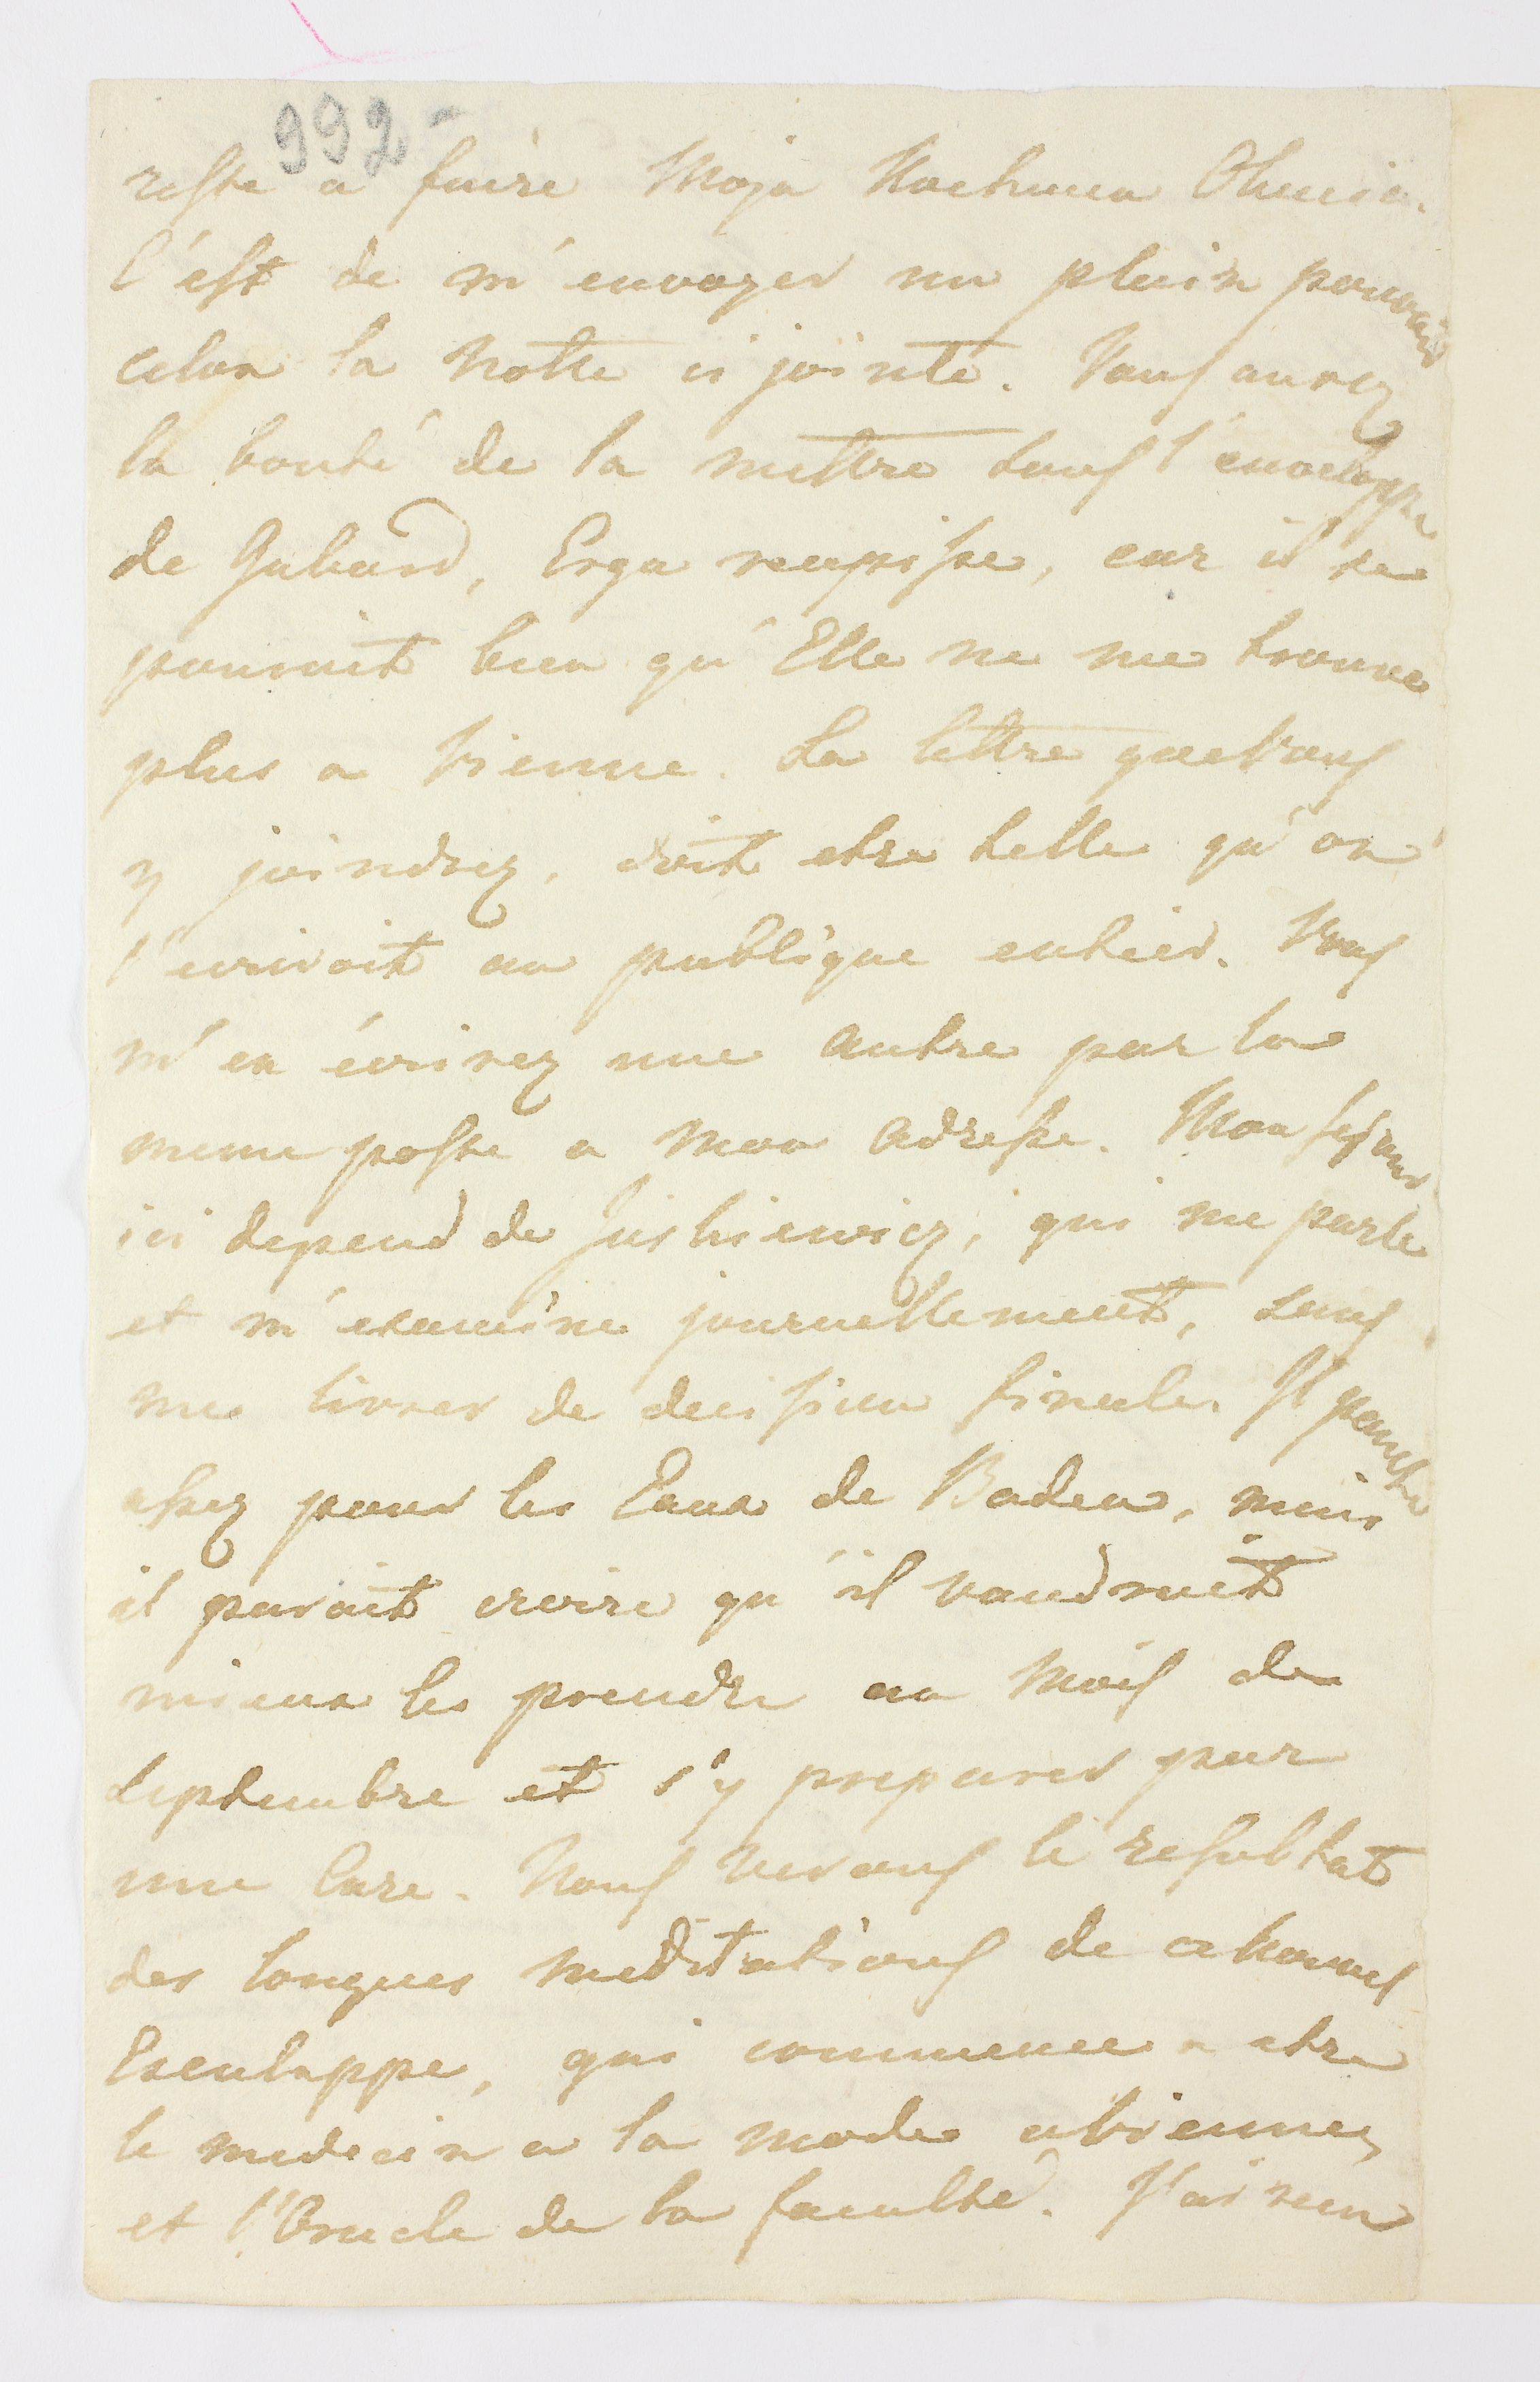 992-
reste a faire Moja Kochana Olunia.
C'est de m'envoyer un plein pouvoir
celon la notte ci jointe. Vous aurez
la bonté de la mettre sous l'enveloppe
de Gabard, Erga recepisse, car il se
pouroit bien qu'Elle ne me trouve
plus a Vienne. La lettre que Vous
y joindrez, doit etre telle qu'on
l'ecriroit au publique entier. Vous
m'en écrirez une autre par la
meme poste a mon adresse. Mon sejour
ici depend de Juskiewicz, qui me parle
et m'examine journellement, sans
me livrer de decision finale. Il panche
assez pour les Eaux de Baden, mais
il paroit croire qu'il vaudroit
mieux les prendre au mois de
Septembre et s'y preparer par
une Cure. Nous verons le resultat
des longues meditations de ce nouvel
Esculappe, qui commence a etre
le medecin a la mode a Vienne,
et l'Oracle de la faculté. J'ai remi